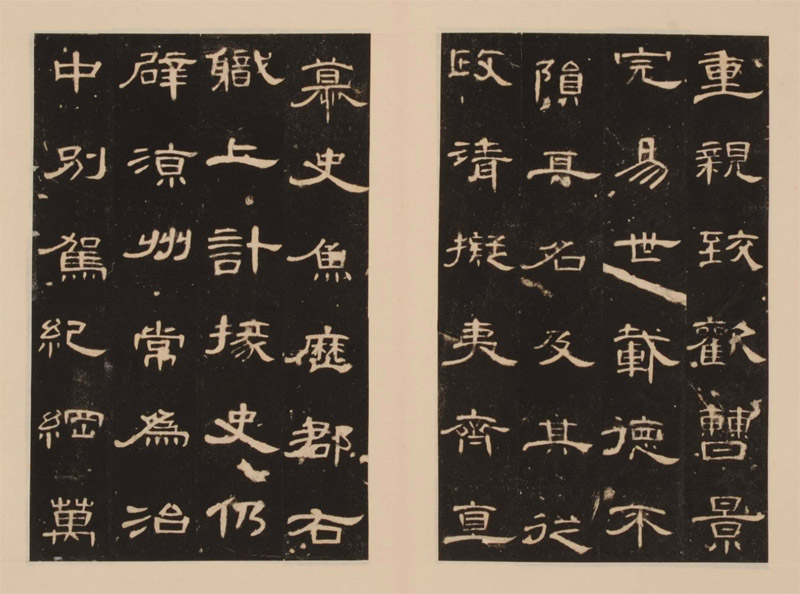 重親致歡曹景
完易世載德不
隕其名及其從
政清擬夷齊直
慕史魚歷郡右
職上計掾史仍
辟涼州常為治
中別駕紀綱萬